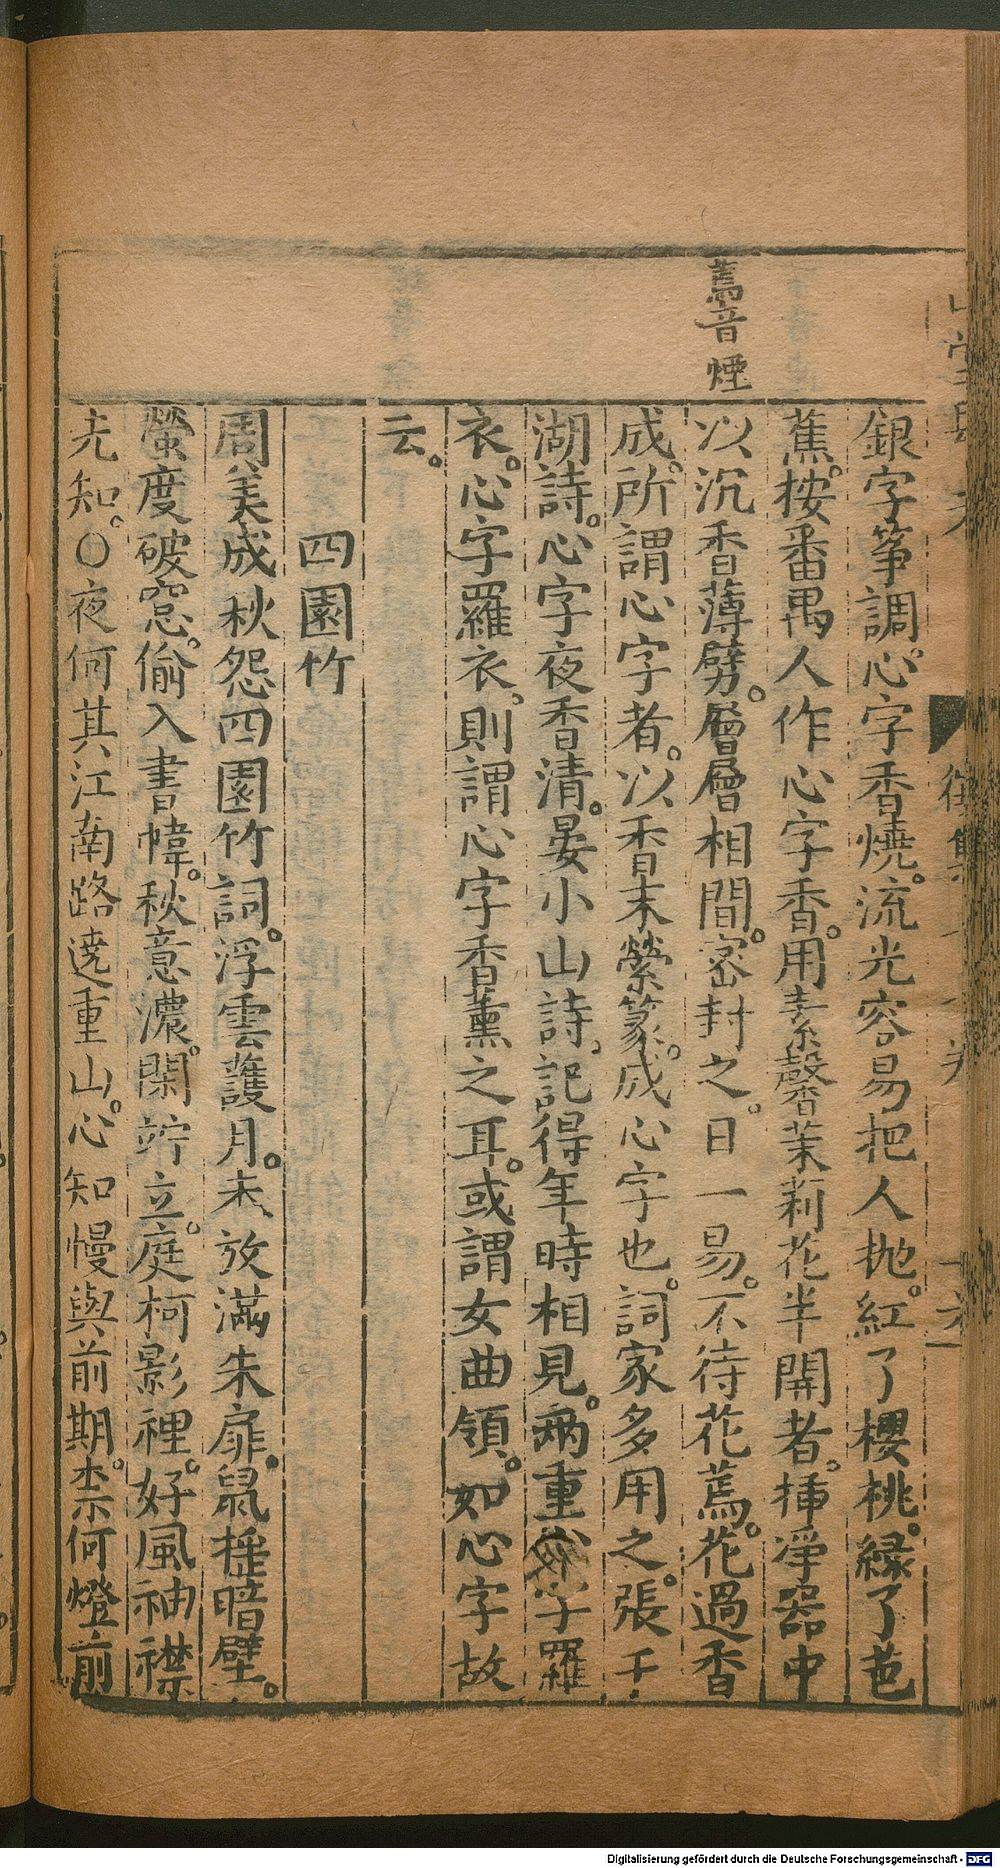 蔫音煙
銀字箏調。心字香燒。流光容易把人拋。紅了櫻桃。綠了芭
蕉。按番禺人作心字香。用素馨茉莉花半開者。挿淨器中
以沉香薄劈。層層相間。密封之。日一易。不待花蔫。花過香
成。所謂心字者。以香末縈篆。成心字也。詞家多用之。張于
湖詩。心字夜香清。晏小山詩。記得年時相見。兩重心字羅
衣。心字羅衣。則謂心字香薰之耳。或謂女曲領。如心字故
云。
四園竹
周美成秋怨四園竹詞。浮雲護月。未放滿朱扉。鼠揺暗壁。
螢度破窓。偷入書幃。秋意濃。閑竚立。庭柯影裡。好風袖襟
先知。〇夜何其江南路遶重山。心知慢與前期。柰何燈前
Digitalisierung gefördert durch die Deutsche Forschungsgemeinschaft - DFG